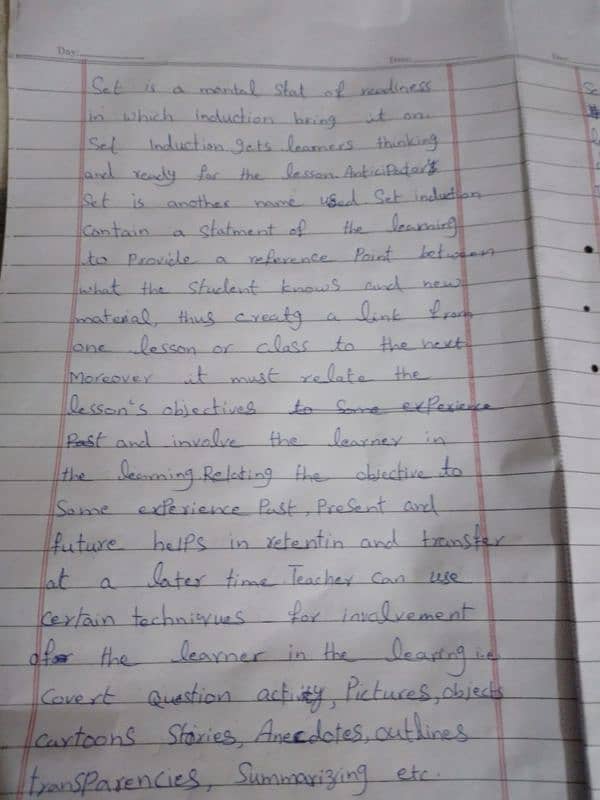 Day:
Set is a mental stat of readiness
in which induction bring it on.
Set Induction gets learners thinking
and ready for the lesson. Anticipatory
Set is another name used Set induction
Contain a Statment of the learning
to Provide a reference Point between
what the student knows and new
material, thus creatg a link from
one lesson or class to the next
Moreover it must relate the
lesson's objectives to Some exPerience
Past and involve the learner in
the learning. Relating the objective to
Some exPerience Past, Present and
future helps in retentin and transfer
at a later time Teacher can use
certain techniques for involvement
of the learner in the learing i.e
Covert Question activity, Pictures, objects
cartoons Stories, Anecdotes, outlines
transParencies, Summarizing etc.